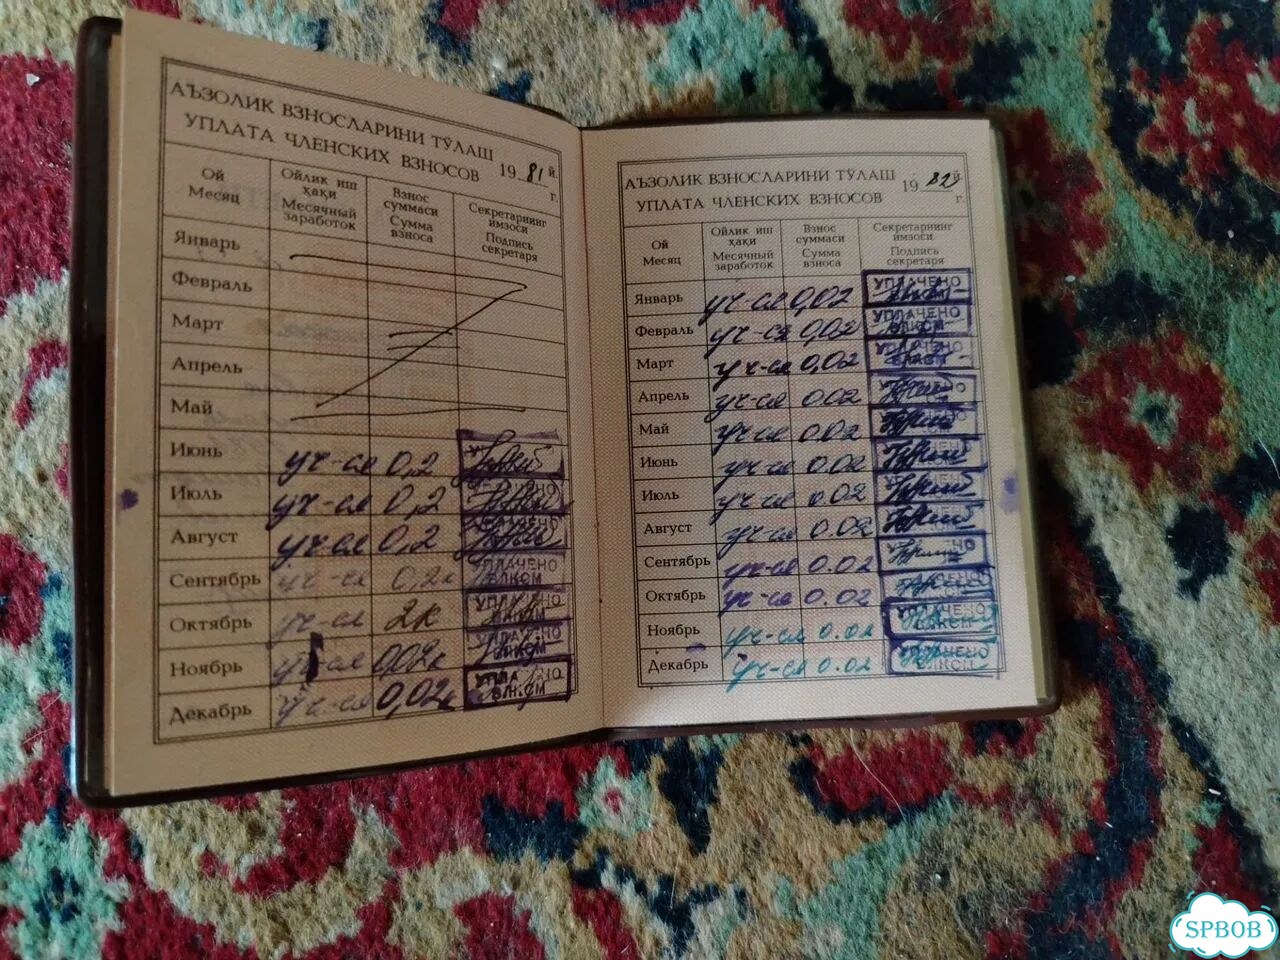 АЪЗОЛИК ВЗНОСЛАРИНИ ТЎЛАШ
УПЛАТА ЧЛЕНСКИХ ВЗНОСОВ
19 81 й.
г.
Ой
Месяц
Ойлик иш
ҳақи
Месячный
заработок
Взнос
суммаси
Сумма
взноса
Секретарнинг
имзоси
Подпись
секретаря
Январь
Февраль
Март
Апрель
Май
Июнь уч-ся 0,2
Июль уч-ся 0,2
Август уч-ся 0,2
Сентябрь уч-ся 0,2к УПЛАЧЕНО ВЛКСМ
Октябрь уч-ся 2к УПЛАЧЕНО
Ноябрь уч-ся 0,02к УПЛАЧЕНО
Декабрь уч-ся 0,02к
АЪЗОЛИК ВЗНОСЛАРИНИ ТЎЛАШ
УПЛАТА ЧЛЕНСКИХ ВЗНОСОВ
19 82 й.
г.
Ой
Месяц
Ойлик иш
ҳақи
Месячный
заработок
Взнос
суммаси
Сумма
взноса
Секретарнинг
имзоси
Подпись
секретаря
Январь уч-ся 0,02 УПЛАЧЕНО
Февраль уч-ся 0,02 УПЛАЧЕНО
Март уч-ся 0,02
Апрель уч-ся 0.02
Май уч-ся 0.02
Июнь уч-ся 0.02
Июль уч-ся 0.02
Август уч-ся 0.02
Сентябрь уч-ся 0.02
Октябрь уч-ся 0.02
Ноябрь уч-ся 0.02 УПЛАЧЕНО
Декабрь уч-ся 0.02 УПЛАЧЕНО
SPBOB